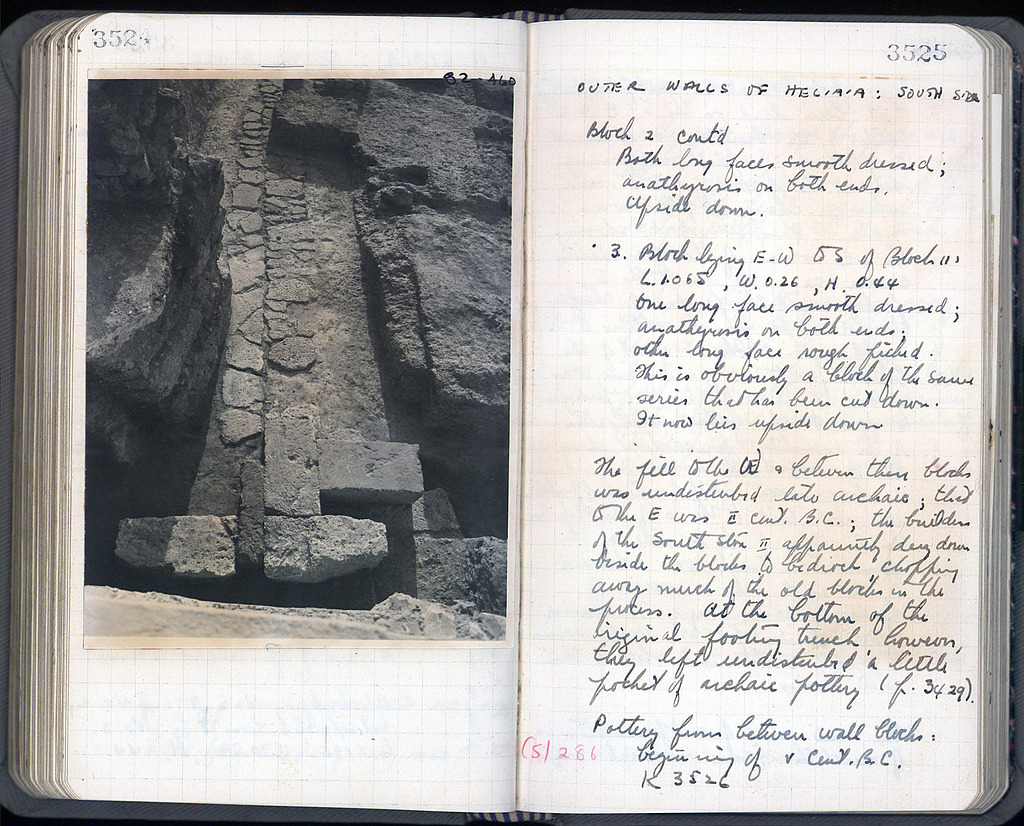 3524
82-460
3525
OUTER WALLS OF HELIAIA: SOUTH SIDE
Block 2 contd
Both long faces smooth dressed;
anathyrosis on both ends.
Upside down.
3. Block lying E-W to S of Block 1:
L. 1.065, W. 0.26, H. 0.44
One long face smooth dressed;
anathyrosis on both ends;
other long face rough picked.
This is obviously a block of the same
series that has been cut down.
It now lies upside down
The fill to the W & between these blocks
was undisturbed late archaic; that
to the E was II cent. B.C.; the builders
of the South Stoa II apparently dug down
beside the blocks to bedrock chopping
away much of the old blocks in the
process. At the bottom of the
original footing trench however,
they left undisturbed a little
pocket of archaic pottery (p. 3429).
Pottery from between wall blocks:
(S) 286
beginning of V Cent. B.C.
K 3526